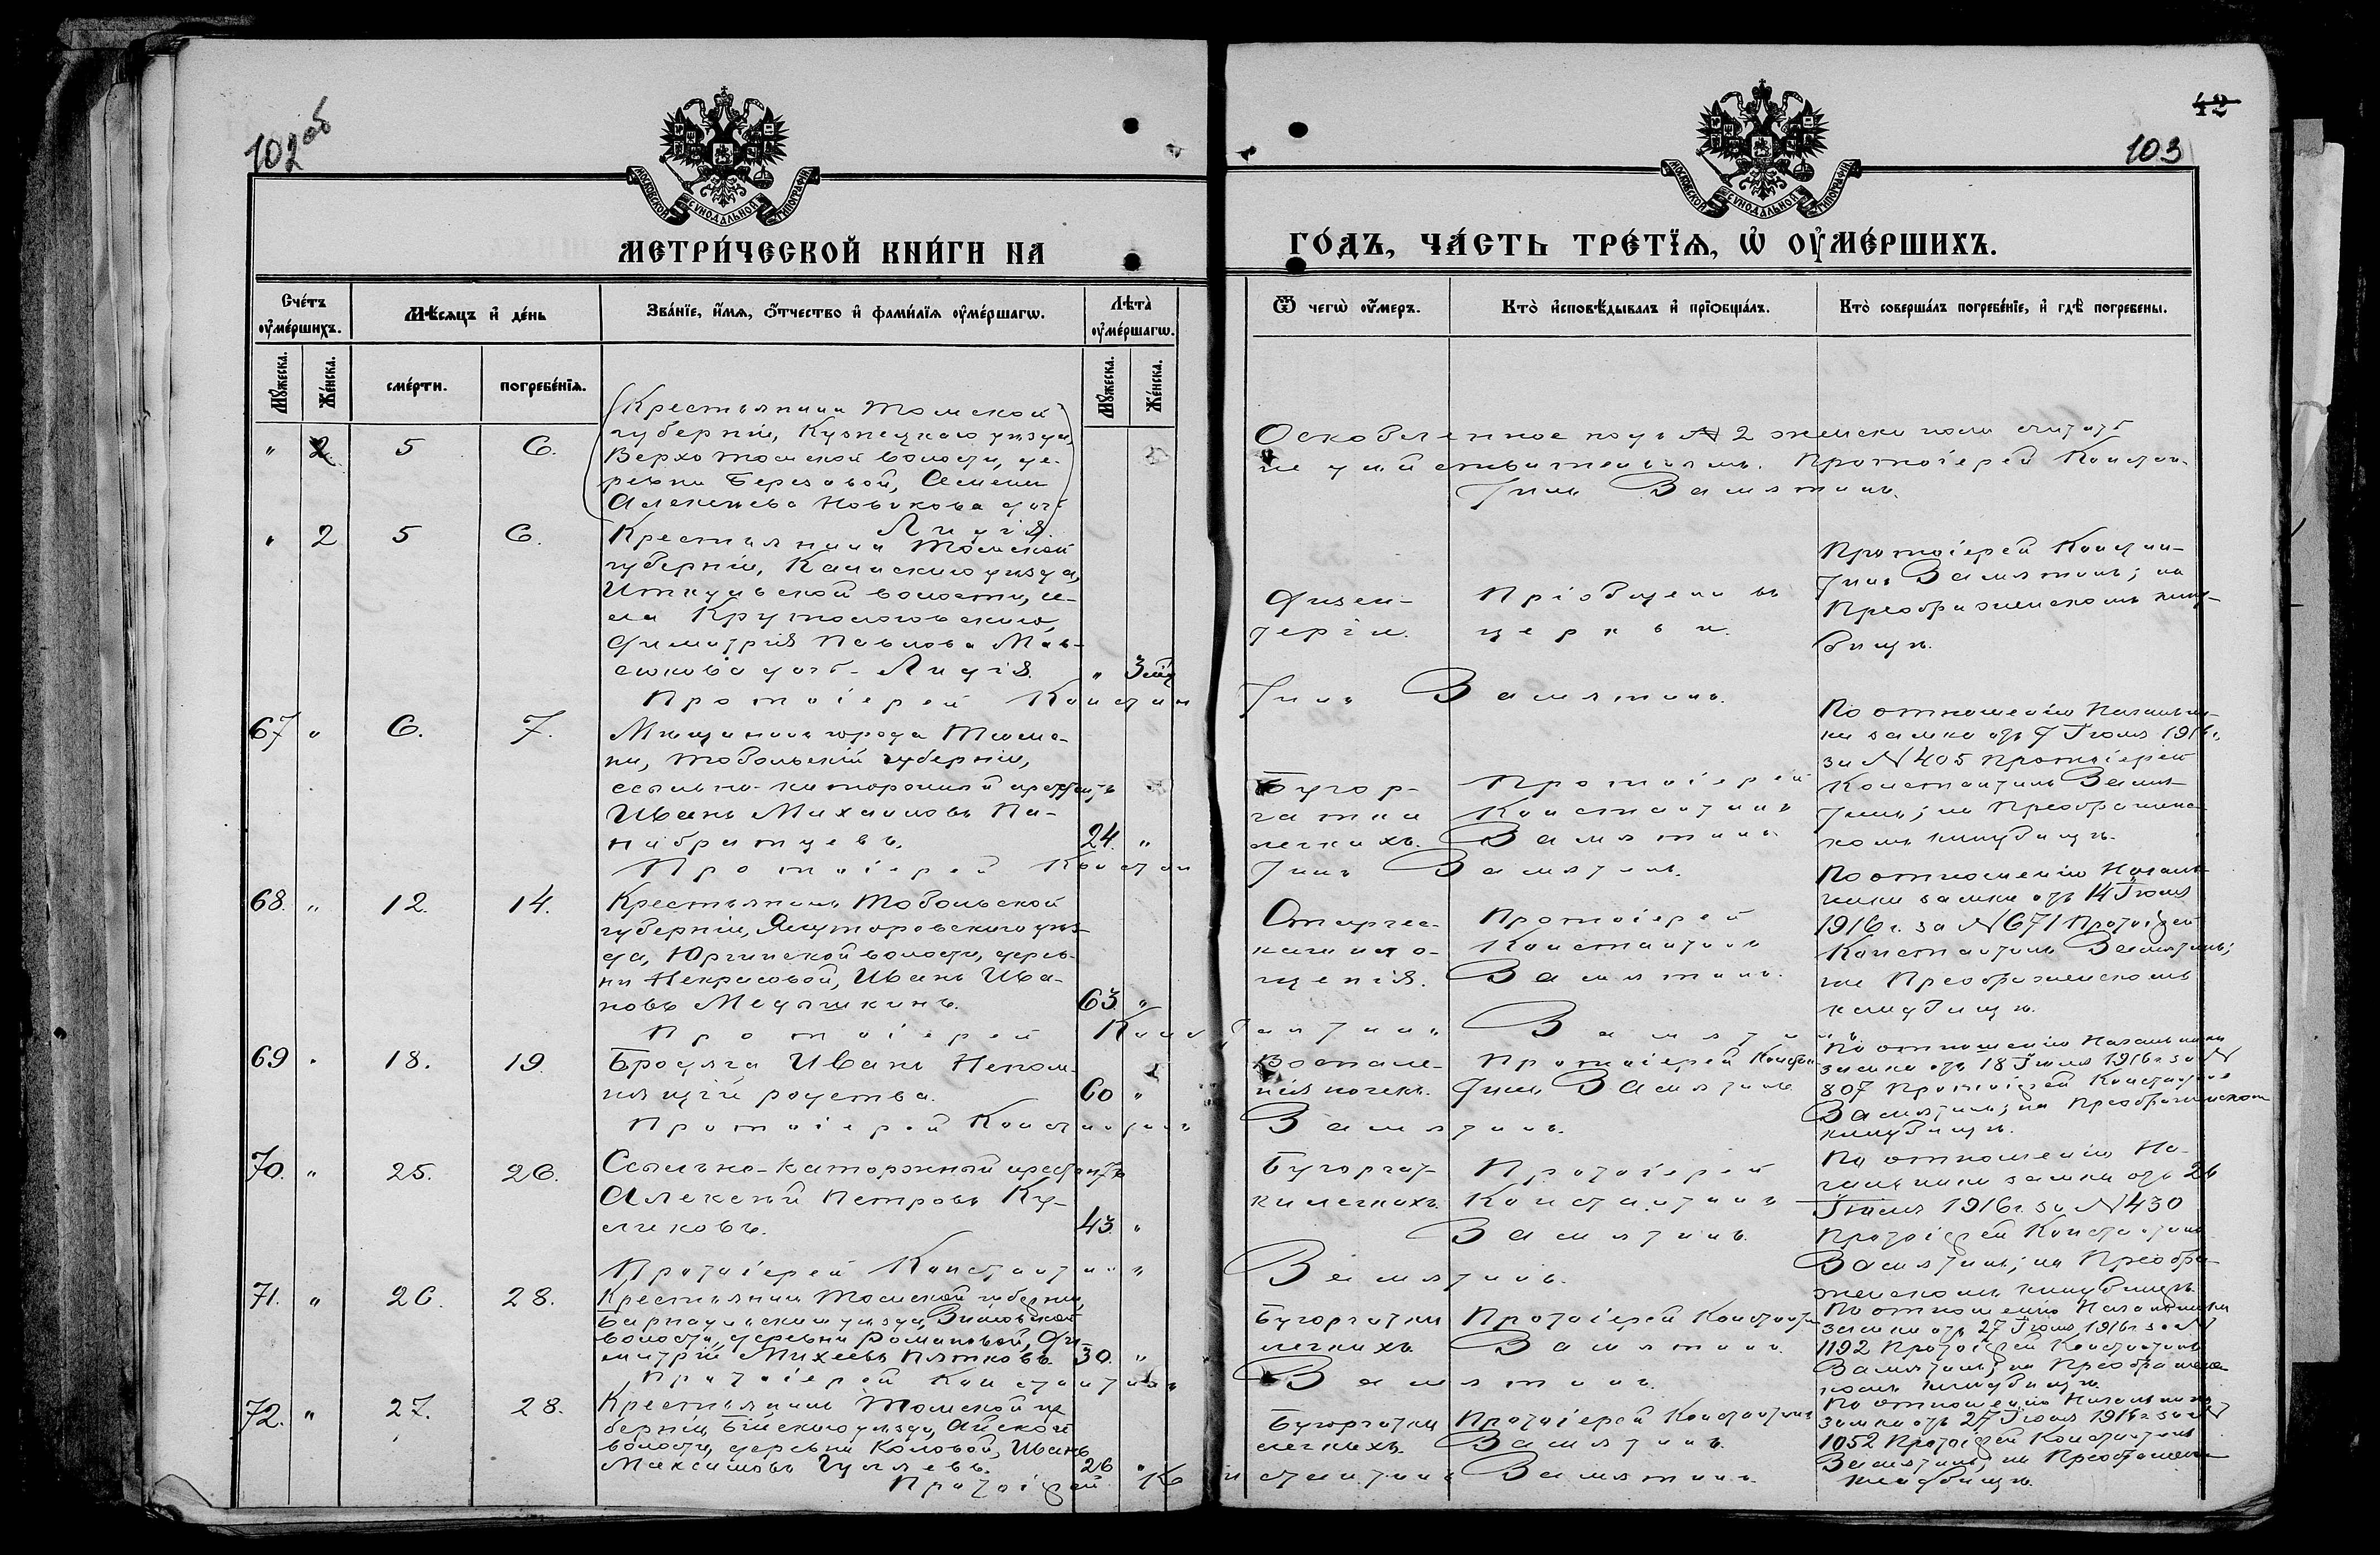 102об
42
103
МОСКОВСКОЙ СѴНОДАЛЬНОЙ ТИПОГРАФІИ
МОСКОВСКОЙ СѴНОДАЛЬНОЙ ТИПОГРАФІИ
МЕТРИ́ЧЕСКОЙ КНИ́ГИ НА
ГО́ДЪ, ЧА́СТЬ ТРЕ́ТЇѦ, Ѡ҆ ОУ҆МЕ́РШИХЪ.
Счётъ оу҆ме́ршихъ.
Мѣ́сѧцъ и҆ де́нь
Зва́нїе, и҆́мѧ, ѻ҆́тчество и҆ фами́лїѧ оу҆ме́ршагѡ.
Лѣ́та оу҆ме́ршагѡ.
Ѿ чегѡ̀ оу҆́меръ.
Кто̀ и҆сповѣ́дывалъ и҆ прїѡбща́лъ.
Кто̀ соверша́лъ погребе́нїе, и҆ гдѣ̀ погребены.
Мꙋ́жеска.
Же́нска.
сме́рти.
погребе́нїѧ.
Мꙋ́жеска.
Же́нска.
" 2 5 6.
(Крестьянина Томской
губерніи, Кузнецкаго уѣзда,
Верхотомской волости, де-
ревни Березовой, Семена
Алексѣева Новикова дочь
Лидія)
женска полу считать
не дѣйствительнымъ. Протоіерей Констан-
тинъ Замятинъ.
" 2 5 6.
Крестьянина Томской
губерніи, Каинскаго уѣзда,
Иткульской волости, се-
ла Крутологовскаго,
Димитрія Павлова
дочь - Лидія. " 3 мѣс
Дизен-
теріи.
Пріобщена въ
церкви.
Протоіерей Констан-
тинъ Замятинъ; на
Преображенскомъ клад-
бищѣ.
Протоіерей Констан
тинъ Замятинъ.
67 " 6. 7.
Мѣщанинъ города Тюме-
ни, Тобольскій губерніи,
ссыльно-каторжный арестантъ
Иванъ Михаиловъ Па-
набратцевъ. 24. "
Бугор-
чатки
легкихъ.
Протоіерей
Константинъ
Замятинъ
По отношенію Начальни-
ка замка отъ 7 Іюля 1916 г.
за № 405 Протоіерей
Константинъ Замя-
тинъ; на Преображенс-
комъ кладбищѣ.
Протоіерей Констан
тинъ Замятинъ.
68. " 12. 14.
Крестьянинъ Тобольской
губерніи, Ялуторовскаго уѣз-
да, Юргинской волости, дерев-
ни Некрасовой, Иванъ Ива-
новъ 63. "
Старчес-
каго исто-
щенія.
Протоіерей
Константинъ
Замятинъ.
По отношенію Началь-
ника замка отъ 14 Іюля
1916 г. за № 671 Протоіерей
Константинъ Замятинъ;
на Преображенскомъ
кладбищѣ.
Протоіерей Конс
тантинъ Замятинъ
69 " 18. 19.
Бродяга Иванъ Непом-
нящій родства. 60 "
Воспале-
нія почекъ.
Протоіерей Констан-
тинъ Замятинъ
По отношенію Начальника
замка отъ 18 Іюля 1916 г. за №
807 Протоіерей Константинъ
Замятинъ; на Преображенскомъ
кладбищѣ.
Протоіерей Константинъ
Замятинъ.
70. " 25. 26.
Ссыльно-каторжный арестантъ
Алексѣй Петровъ Ку-
ликовъ. 43. "
Бугорчат-
ки легкихъ.
Протоіерей
Константинъ
Замятинъ.
По отношенію На-
чальника замка отъ 26
Іюля 1916 г. за № 430
Протоіерей Константинъ
Замятинъ; на Преобра-
женскомъ кладбищѣ.
Протоіерей Константинъ
Замятинъ.
71. " 26. 28.
Крестьянинъ Томской губерніи,
Барнаульскаго уѣзда,
волости, деревни Романовой, Ди-
митрій Михеевъ Пятковъ. 30. "
Бугорчатки
легкихъ.
Протоіерей Константинъ
Замятинъ.
По отношенію Начальника
замка отъ 27 Іюля 1916 г. за №
1192 Протоіерей Константинъ
Замятинъ; на Преображенс-
комъ кладбищѣ.
Протоіерей Константинъ
Замятинъ.
72. " 27. 28.
Крестьянинъ Томской гу-
берніи, Бійскаго уѣзда, Айской
волости, деревни Иванъ
Максимовъ Гуляевъ. 26 "
Бугорчатки
легкихъ.
Протоіерей Константинъ
Замятинъ.
По отношенію Начальника
замка отъ 27 Іюля 1916 г. за №
1052 Протоіерей Константинъ
Замятинъ; на Преображенс
кладбищѣ.
Протоіерей Ко
нстантинъ Замятинъ.